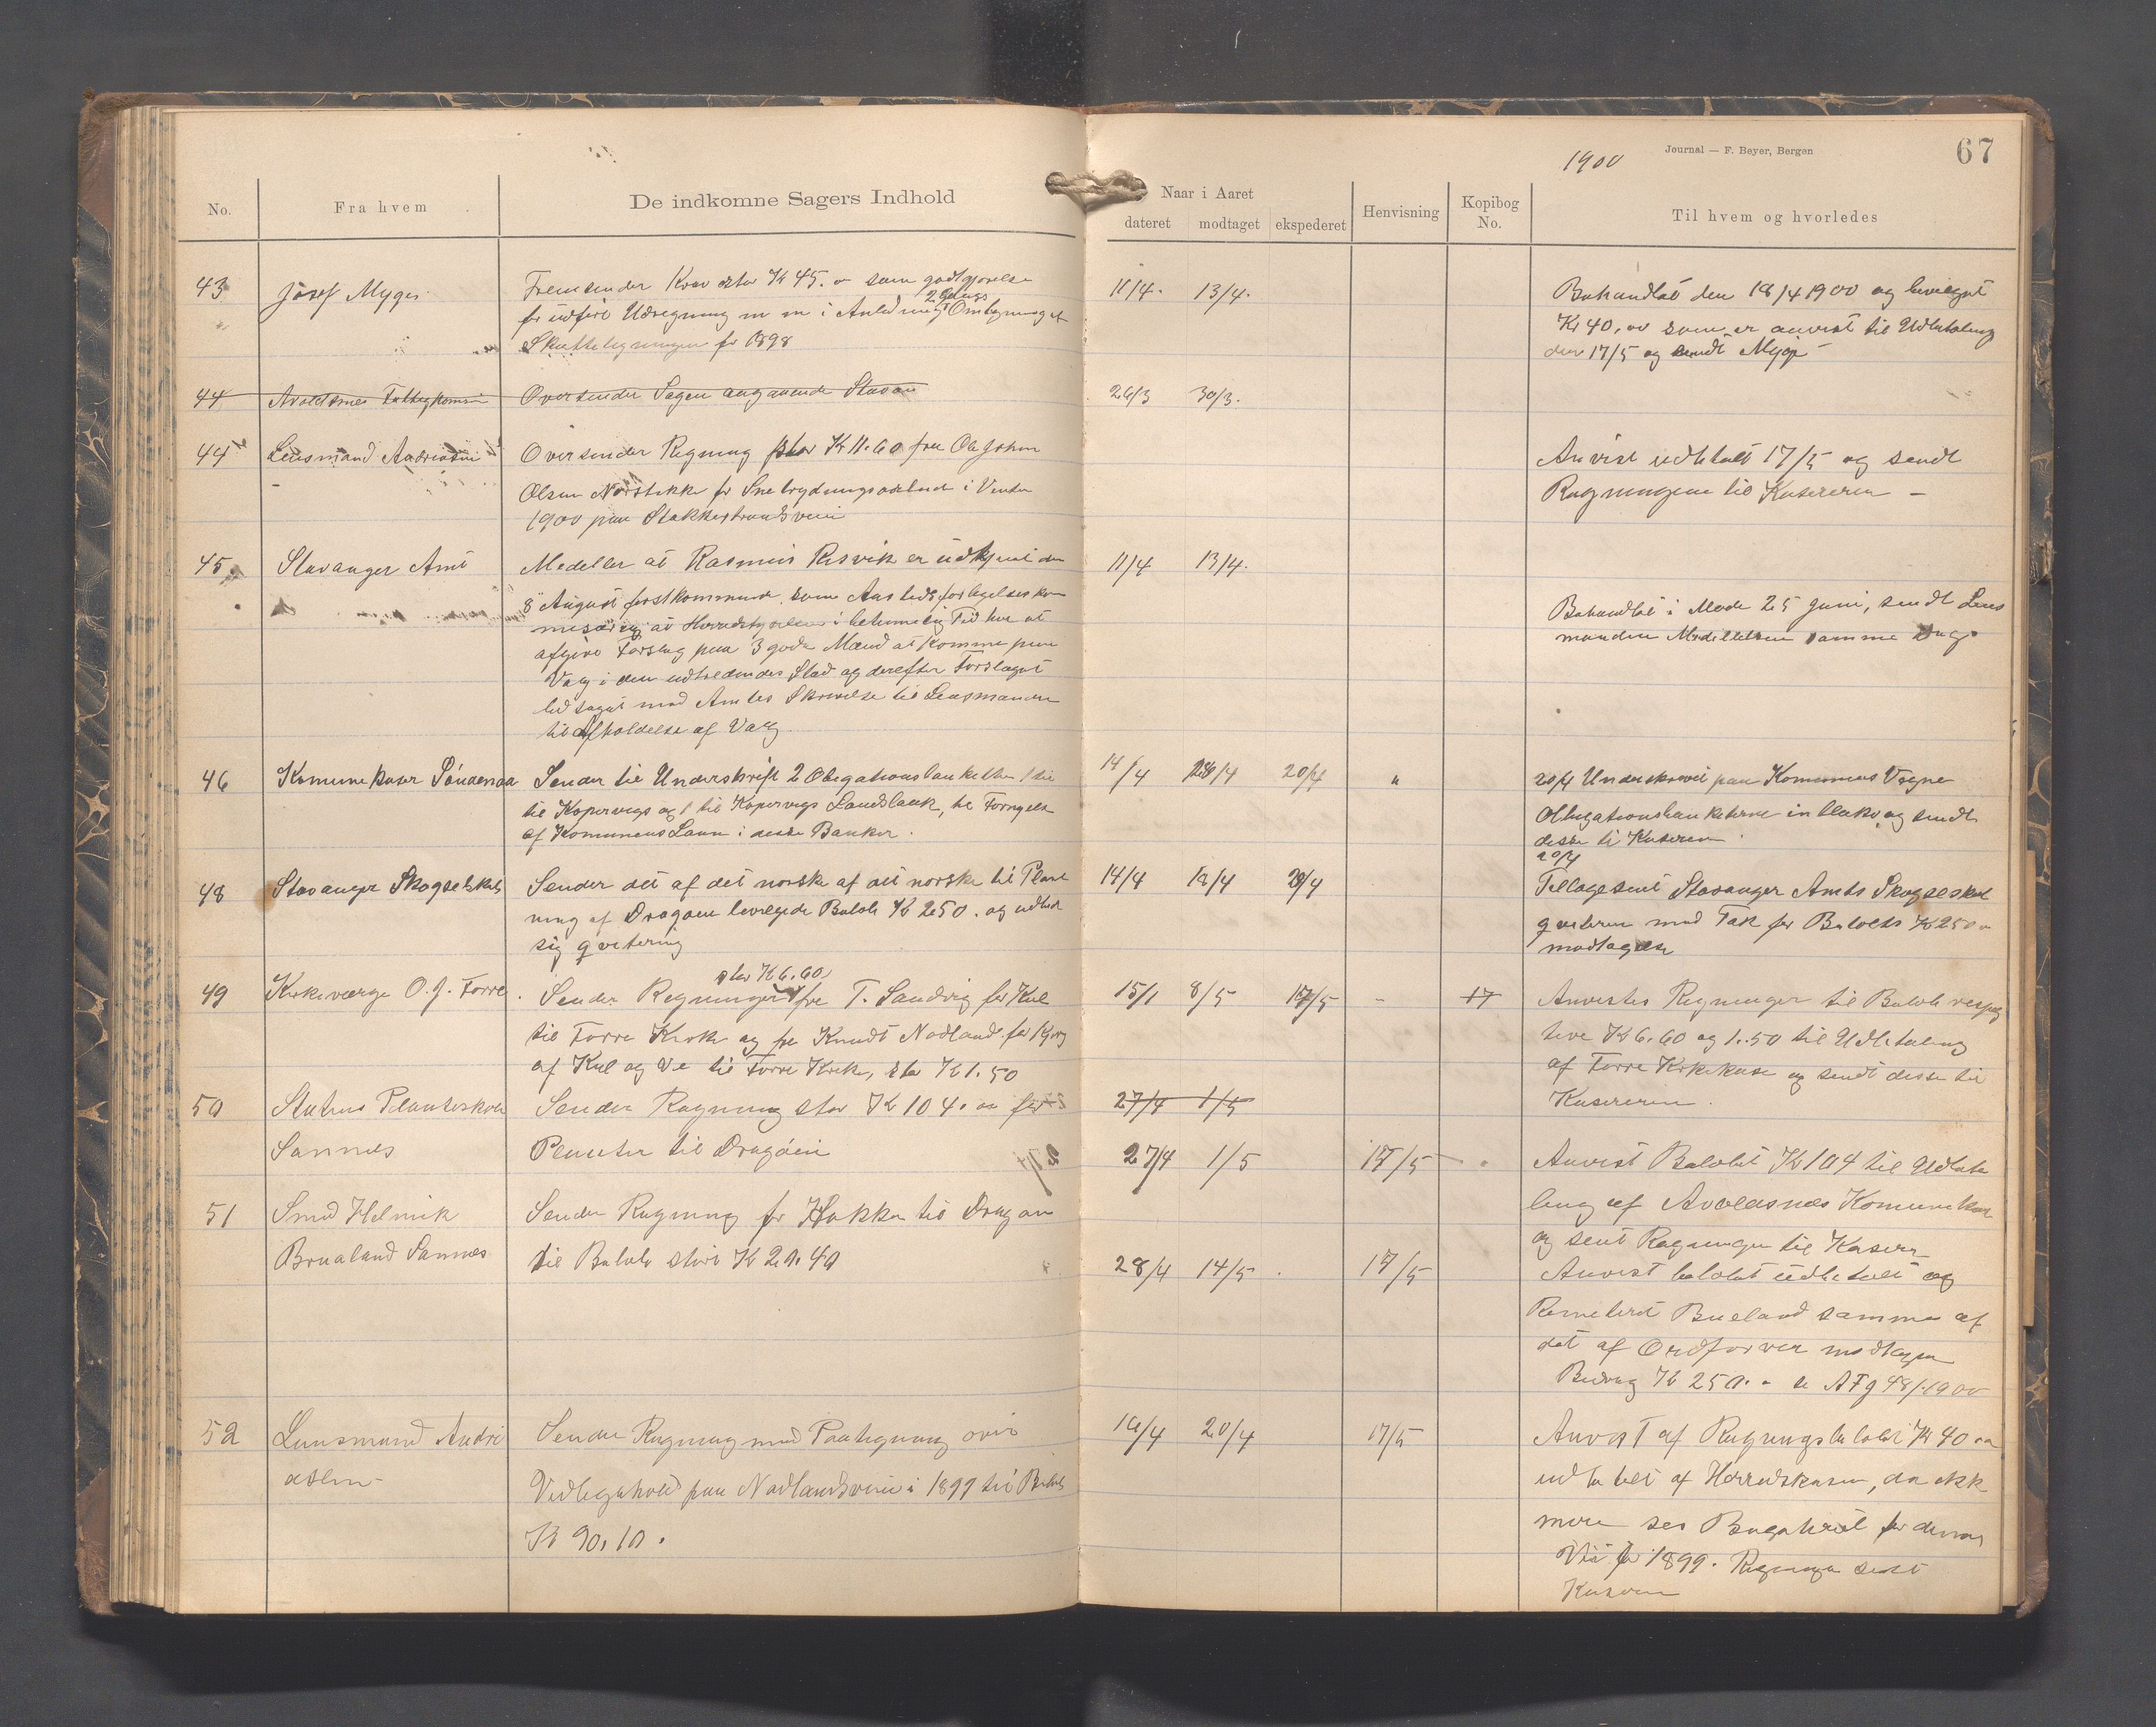 1900
Journal — F. Beyer, Bergen
67
No.
Fra hvem
De indkomne Sagers Indhold
Naar i Aaret
dateret
modtaget
ekspederet
Henvisning
Kopibog No.
Til hvem og hvorledes
43
Josef Myge
Fremsender Krav stor Kr 45. " som godtgjørelse
for udført Udregning m m i Anledning 2 Gangs Omligning af
Skatteligningen for 1898
11/4.
13/4.
Behandlet den 18/4 1900 og bevilget
Kr 40,00 som er anvist til Udbetaling
den 17/5 og sendt Myge
44
Avaldsnes
Oversender Sagen angaaende Stavan
26/3
30/3.
44
Lensmand Andreasen
Oversender Regning stor Kr 11.60 fra Ole Johan
Olsen Norstokke for Snebrydningsarbeide i Vinter
1900 paa Stokkestrandsveien
Anvist udbetalt 17/5 og sendt
Regningene til Kasereren —
45
Stavanger Amt
Medeler at Rasmus Risvik er udkjent den
8 August førstkommende som Aastedsforligelseskom
misær og at Herredstyrelsen i betimelig Tid har at
afgive Forslag paa 3 gode Mænd at komme paa
Valg i den udtrædendes Sted og derefter Forslaget
ledsaget med Amtes Skrivelse til Lensmanden
til Afholdelse af Valg
11/4
13/4.
Behandlet i Møde 25 Juni, sendt Lens
manden Medelelsen samme Dag.
46
Komunekaser Søndenaa
Sender til Underskrift 2 Obligationsblanketter 1 til
til Kopervigs og 1 til Kopervigs Landsbank, til Fornyelse
af Komunens Laan i desse Banker.
14/4
18/4
20/4
"
20/4 Underskrevet paa Komunens Vegne
Obligationsblanketterne in blako og sendt
desse til Kasereren.
48
Stavanger Skogselskab
Sender det af det norske af det norske til Plant
ning af Dragøen bevilgede Beløb Kr 250. og udbad
sig qvitering
14/4
18/4
20/4
20/4
Tilbagesent Stavanger Amts Skogselskab
qviteren med Tak for Beløbets Kr 250 "
modtagelse
49
Kirkeværge O. J. Førre.
Sender Regninger stor Kr 6.60 fra T. Sandvig for Kul
til Førre Kirke og fra Knudt Nodland for Kjøring
af Kul og Ve til Førre Kirke, stor Kr 1.50
15/1
8/5
17/5
-
17
Anvistes Regninger til Beløb respeg
tive Kr 6.60 og 1.50 til Udbetaling
af Førre Kirkekase og sendt desse til
Kasereren.
50
Statens Planteskole
Sannes
Sender Regning stor Kr 104. 00 for
Planter til Dragøen
27/4
1/5
27/4
1/5
17/5
Anvist Beløbet Kr 104 til Udbeta
ling af Avaldsnes Komunekase
og sent Regningen til Kaserer
51
Smed Helmik
Brualand Sannes
Sender Regning for Hakker til Dragøen
til Beløb stort Kr 20.40
28/4
14/5
17/5
Anvist beløbet udbetalt og
Remeteret Brueland samme af
det af Ordfører modtagne
Bidrag Kr 250. - se 48/1900
52
Lensmand Andre
asen
Sender Regning med Paategning over
Vedligehold paa Nodlandsveien i 1899 til Beløb
Kr 90,10.
16/4
20/4
17/5
Anvist af Regningsbeløbet Kr 40 "
udbetalt af Herredskasen, da ikke
mere ses for denne
Vei for 1899. Regningen sent
Kaseren